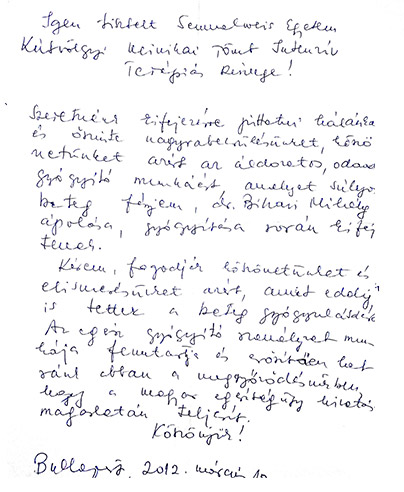 Igen tisztelt Semmelweis Egyetem
Kútvölgyi Klinikai Tömb Intenzív
Terápiás Részlege!
Szeretném kifejezésre juttatni hálánkat
és őszinte nagyrabecsülésünket, köszö
netünket azért az áldozatos, odaa
gyógyító munkáért, amelyet súlyo
beteg férjem, dr. Bihari Mihály
ápolása, gyógyítása során kifej
tenek.
Kérem, fogadják köszönetünket és
elismerésünket azért, amit eddig
is tettek a beteg gyógyulásáért
Az egész gyógyító személyzet mun
kája fenntartja és erősíti
abban a meggyőződésünkben,
hogy a magyar egészségügy hivatás
magaslatán teljesít.
Köszönjük!
Budapest, 2012. március